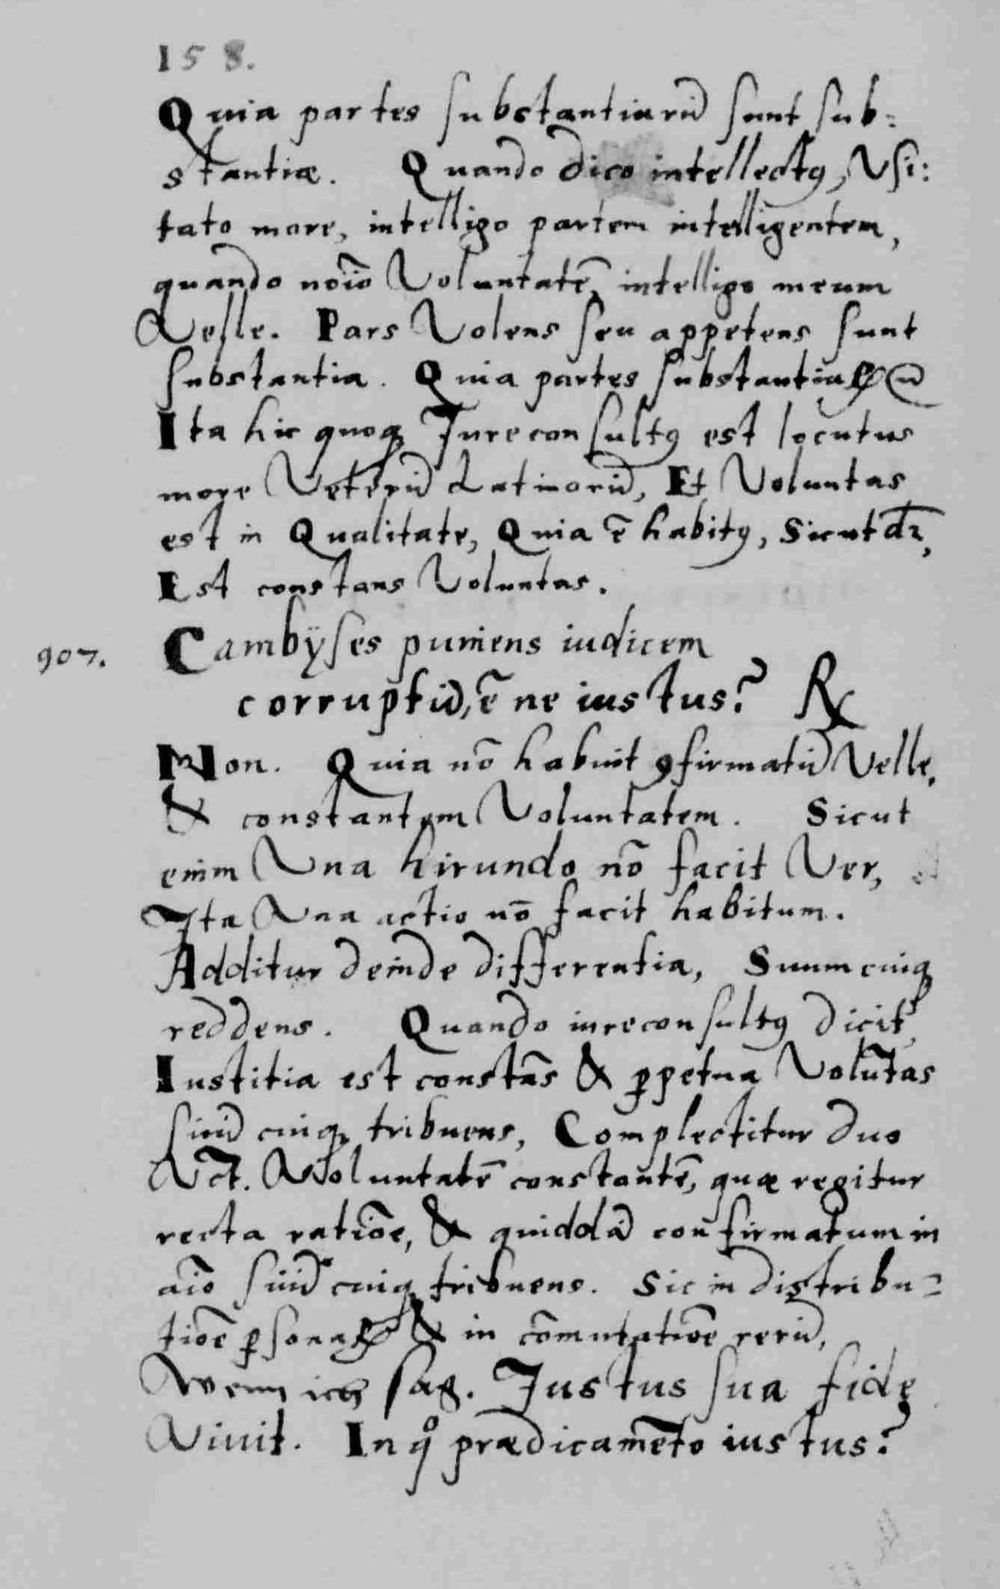 158.
Quia partes substantiarũ sunt sub:
stantiæ. Quando dico intellectꝰ, Vsi:
tato more, intelligo partem intelligentem,
quando noĩo Voluntatẽ, intelligo meum
Velle. Pars Volens seu appetens sunt
substantia. Quia partes substantiaꝝ
Ita hic quoqꝫ Jureconsultꝰ est locutus
more Veterũ Latinorũ, Et Voluntas
est in Qualitate, Quia ẽ habitꝰ, Sicut dr̃,
Est constans Voluntas.
907. Cambÿses puniens iudicem
corruptũ, ẽ ne iustus? ℞
Non. Quia nõ habuit ꝯfirmatũ Velle,
& constantem Voluntatem. Sicut
enim Vna hirundo nõ facit Ver,
Ita Vna actio nõ facit habitum.
Additur deinde differentia, Suum cuiqꝫ
reddens. Quando iureconsultꝰ dicit,
Iustitia est constãs & ꝑpetua Volũtas
suũ cuiqꝫ tribuens, Complectitur duo
Vct. Voluntatẽ constantẽ, quæ regitur
recta ratiõe, & quiddã confirmatum in
aĩo suũ cuiqꝫ tribuens. Sic in distribu=
tiõe ꝑsonaꝝ & in cõmutatiõe rerũ,
Wenn ich sag. Justus sua fide
Viuit. In qͦ prædicamẽto iustus?